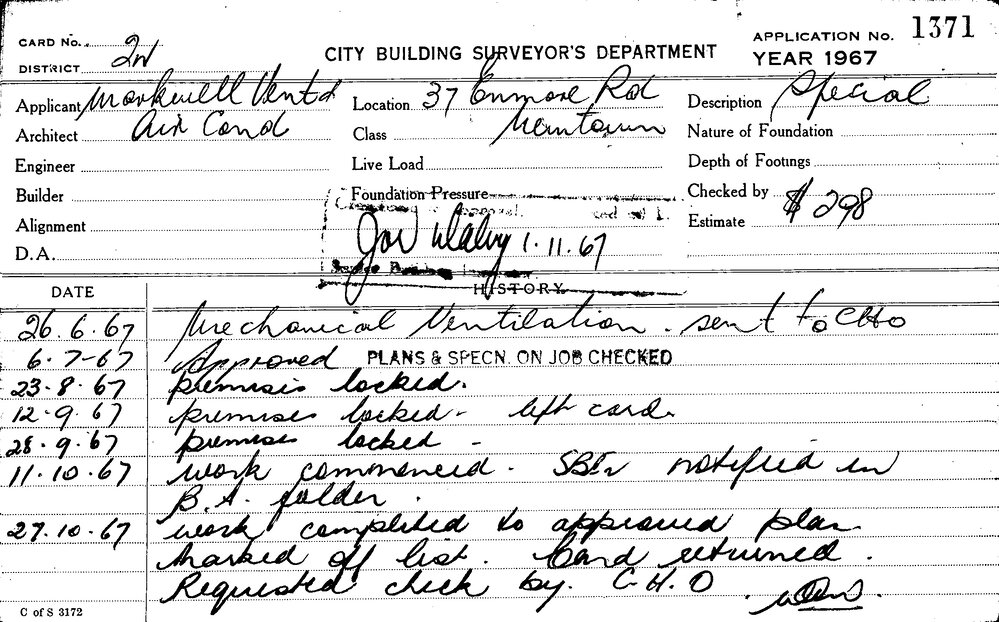 CARD No. 2W
DISTRICT
CITY BUILDING SURVEYOR'S DEPARTMENT
APPLICATION No. 1371
YEAR 1967
Applicant Markwell Vent &
Architect Air Cond
Engineer
Builder
Alignment
D.A.
Location 37 Enmore Rd
Class Newtown
Live Load
Foundation Pressure
1.11.67
Description Special
Nature of Foundation
Depth of Footings
Checked by
Estimate $298
DATE
HISTORY
26.6.67 Mechanical Ventilation. sent to CHO
6.7-67 Approved PLANS & SPECN. ON JOB CHECKED
23.8.67 premises locked.
12.9.67 premises locked - left card.
28.9.67 premises locked -
11.10.67 work commenced. notified in
B.A. folder.
27.10.67 work completed to approved plan
Marked off list. Card returned.
Requested check by. C.H.O
C of S 3172